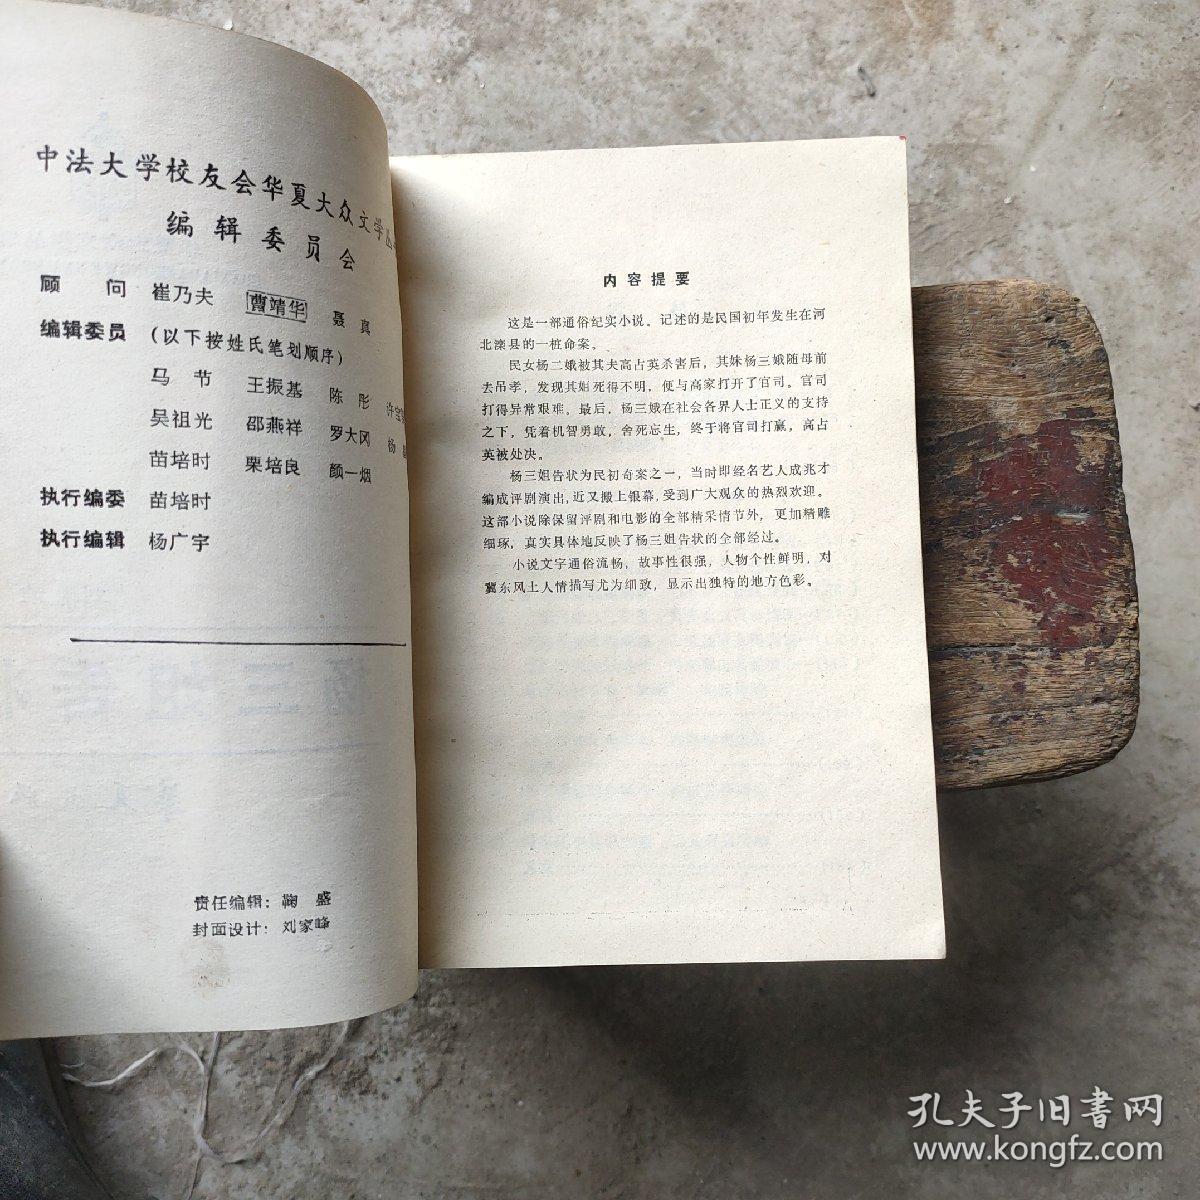 中法大学校友会华夏大众文学丛
编辑委员会
顾 问 崔乃夫 曹靖华 聂真
编辑委员 (以下按姓氏笔划顺序)
马 节 王振基 陈 彤 许
吴祖光 邵燕祥 罗大冈 杨
苗培时 栗培良 颜一烟
执行编委 苗培时
执行编辑 杨广宇
责任编辑：鞠 盛
封面设计：刘家峰
内容提要
这是一部通俗纪实小说。记述的是民国初年发生在河
北滦县的一桩命案。
民女杨二娥被其夫高占英杀害后，其妹杨三娥随母前
去吊孝，发现其姐死得不明，便与高家打开了官司。官司
打得异常艰难。最后，杨三娥在社会各界人士正义的支持
之下，凭着机智勇敢，舍死忘生，终于将官司打赢，高占
英被处决。
杨三姐告状为民初奇案之一，当时即经名艺人成兆才
编成评剧演出，近又搬上银幕，受到广大观众的热烈欢迎。
这部小说除保留评剧和电影的全部精采情节外，更加精雕
细琢，真实具体地反映了杨三姐告状的全部经过。
小说文字通俗流畅，故事性很强，人物个性鲜明，对
冀东风土人情描写尤为细致，显示出独特的地方色彩。
孔夫子旧书网
www.kongfz.com